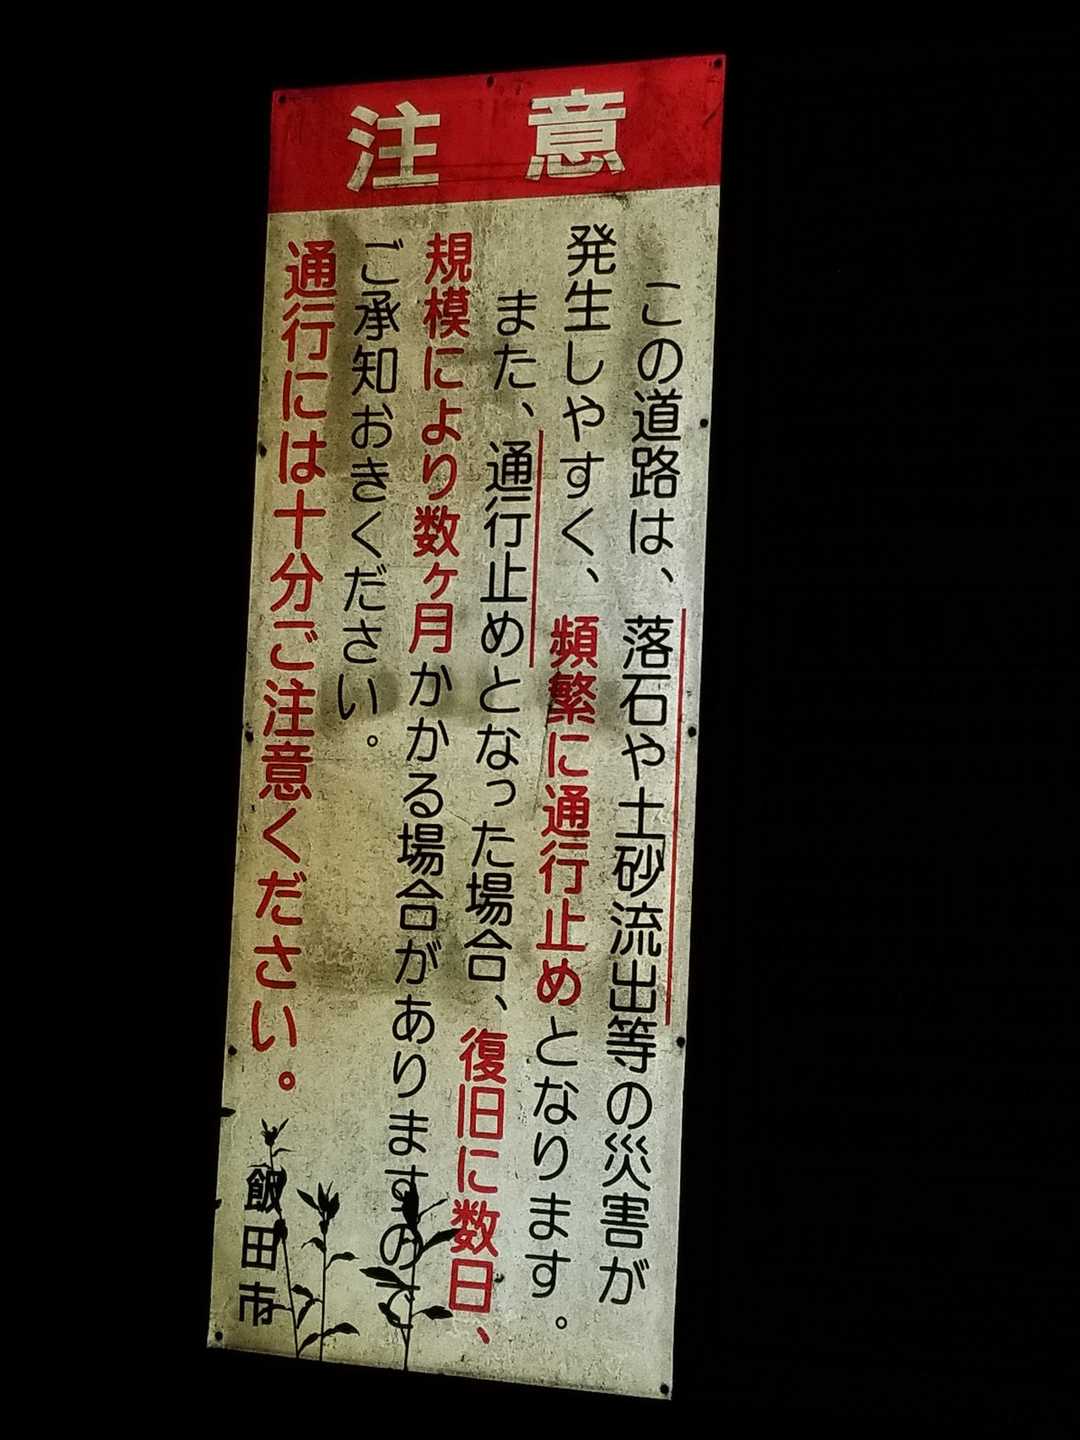 注意
この道路は、落石や土砂流出等の災害が
発生しやすく、頻繁に通行止めとなります。
また、通行止めとなった場合、復旧に数日、
規模により数ヶ月かかる場合がありますので
ご承知おきください。
通行には十分ご注意ください。
飯田市